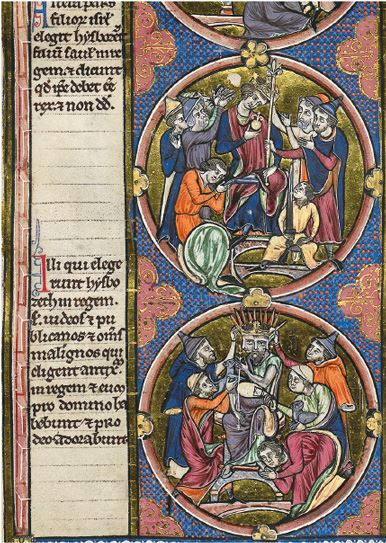 filioꝝ isrl̅
elegit hysboseth
filiū saul̕ in re
gem. ⁊ dicunt
qd̕ ipse debet eē
rex ⁊ non dd̕.
Illi qui elege
runt hysbo
zeth in regem.
s. iudeos ⁊ pu
blicanos ⁊ om̅s
malignos qui
eligent antix̅
in regem ⁊ eum
pro domino ha
bebunt ⁊ pro
deo adorabunt